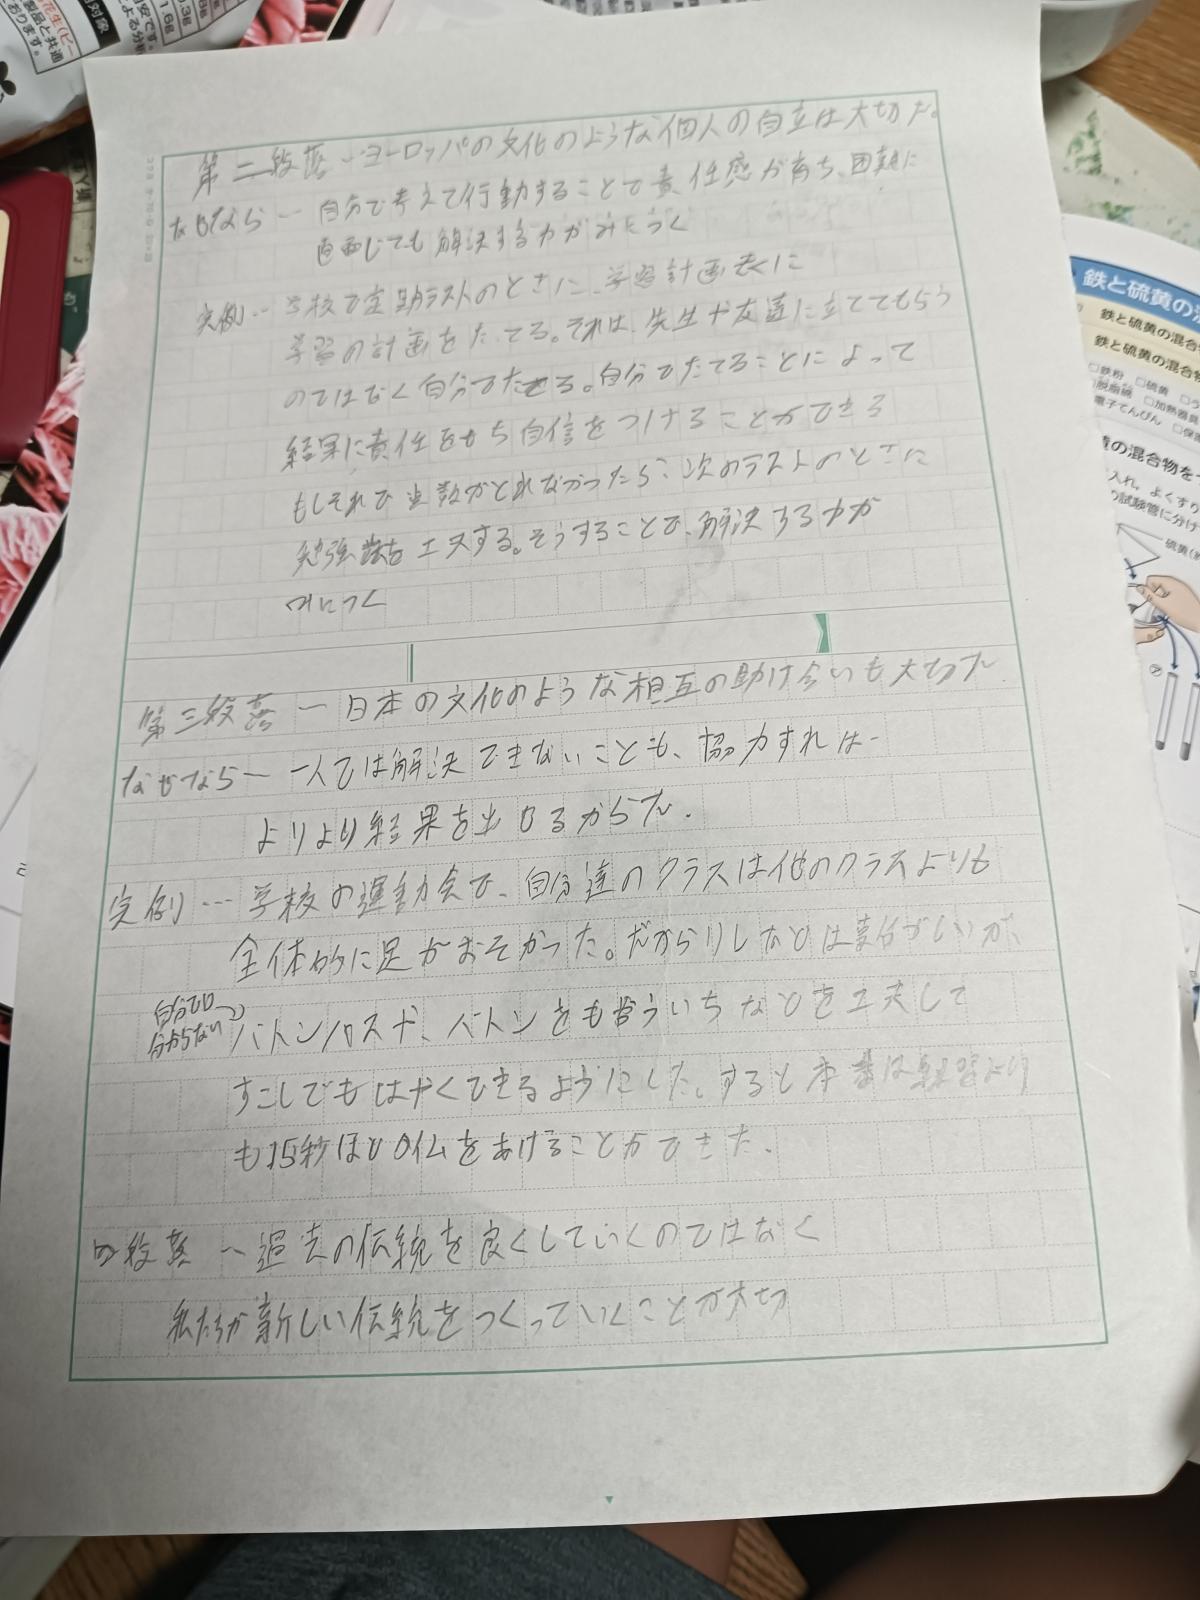 第二段落 - ヨーロッパの文化のような個人の自立は大切だ。
なぜなら - 自分で考えて行動することで責任感が育ち、困難に
直面しても解決する力がみにつく
実例… 学校で定期テストのときに、学習計画表に
学習の計画をたてる。それは、先生や友達に立ててもらう
のではなく自分でたてる。自分でたてることによって
結果に責任をもち自信をつけることができる
もしそれで点数がとれなかったら、次のテストのときに
勉強法を工夫する。そうすることで、解決する力が
みにつく
第三段落 - 日本の文化のような相互の助け合いも大切だ
なぜなら - 一人では解決できないことも、協力すれば
よりよい結果を出せるからだ.
実例… 学校の運動会で、自分達のクラスは他のクラスよりも
全体的に足がおそかった。だからリレーなどは
自分では
分からない
バトンパスや、バトンをも いちなどを工夫して
すこしでもはやくできるようにした。すると本番は練習より
も15秒ほどタイムをあげることができた.
四段落 - 過去の伝統を良くしていくのではなく
私たちが新しい伝統をつくっていくことが大切
鉄と硫黄の
鉄と硫黄の混合
鉄と硫黄の混合
□鉄粉 □硫黄
□脱脂綿 □加熱器具
電子てんびん
黄の混合物を
入れ，よくすり
試験管に分け
硫黄
対象